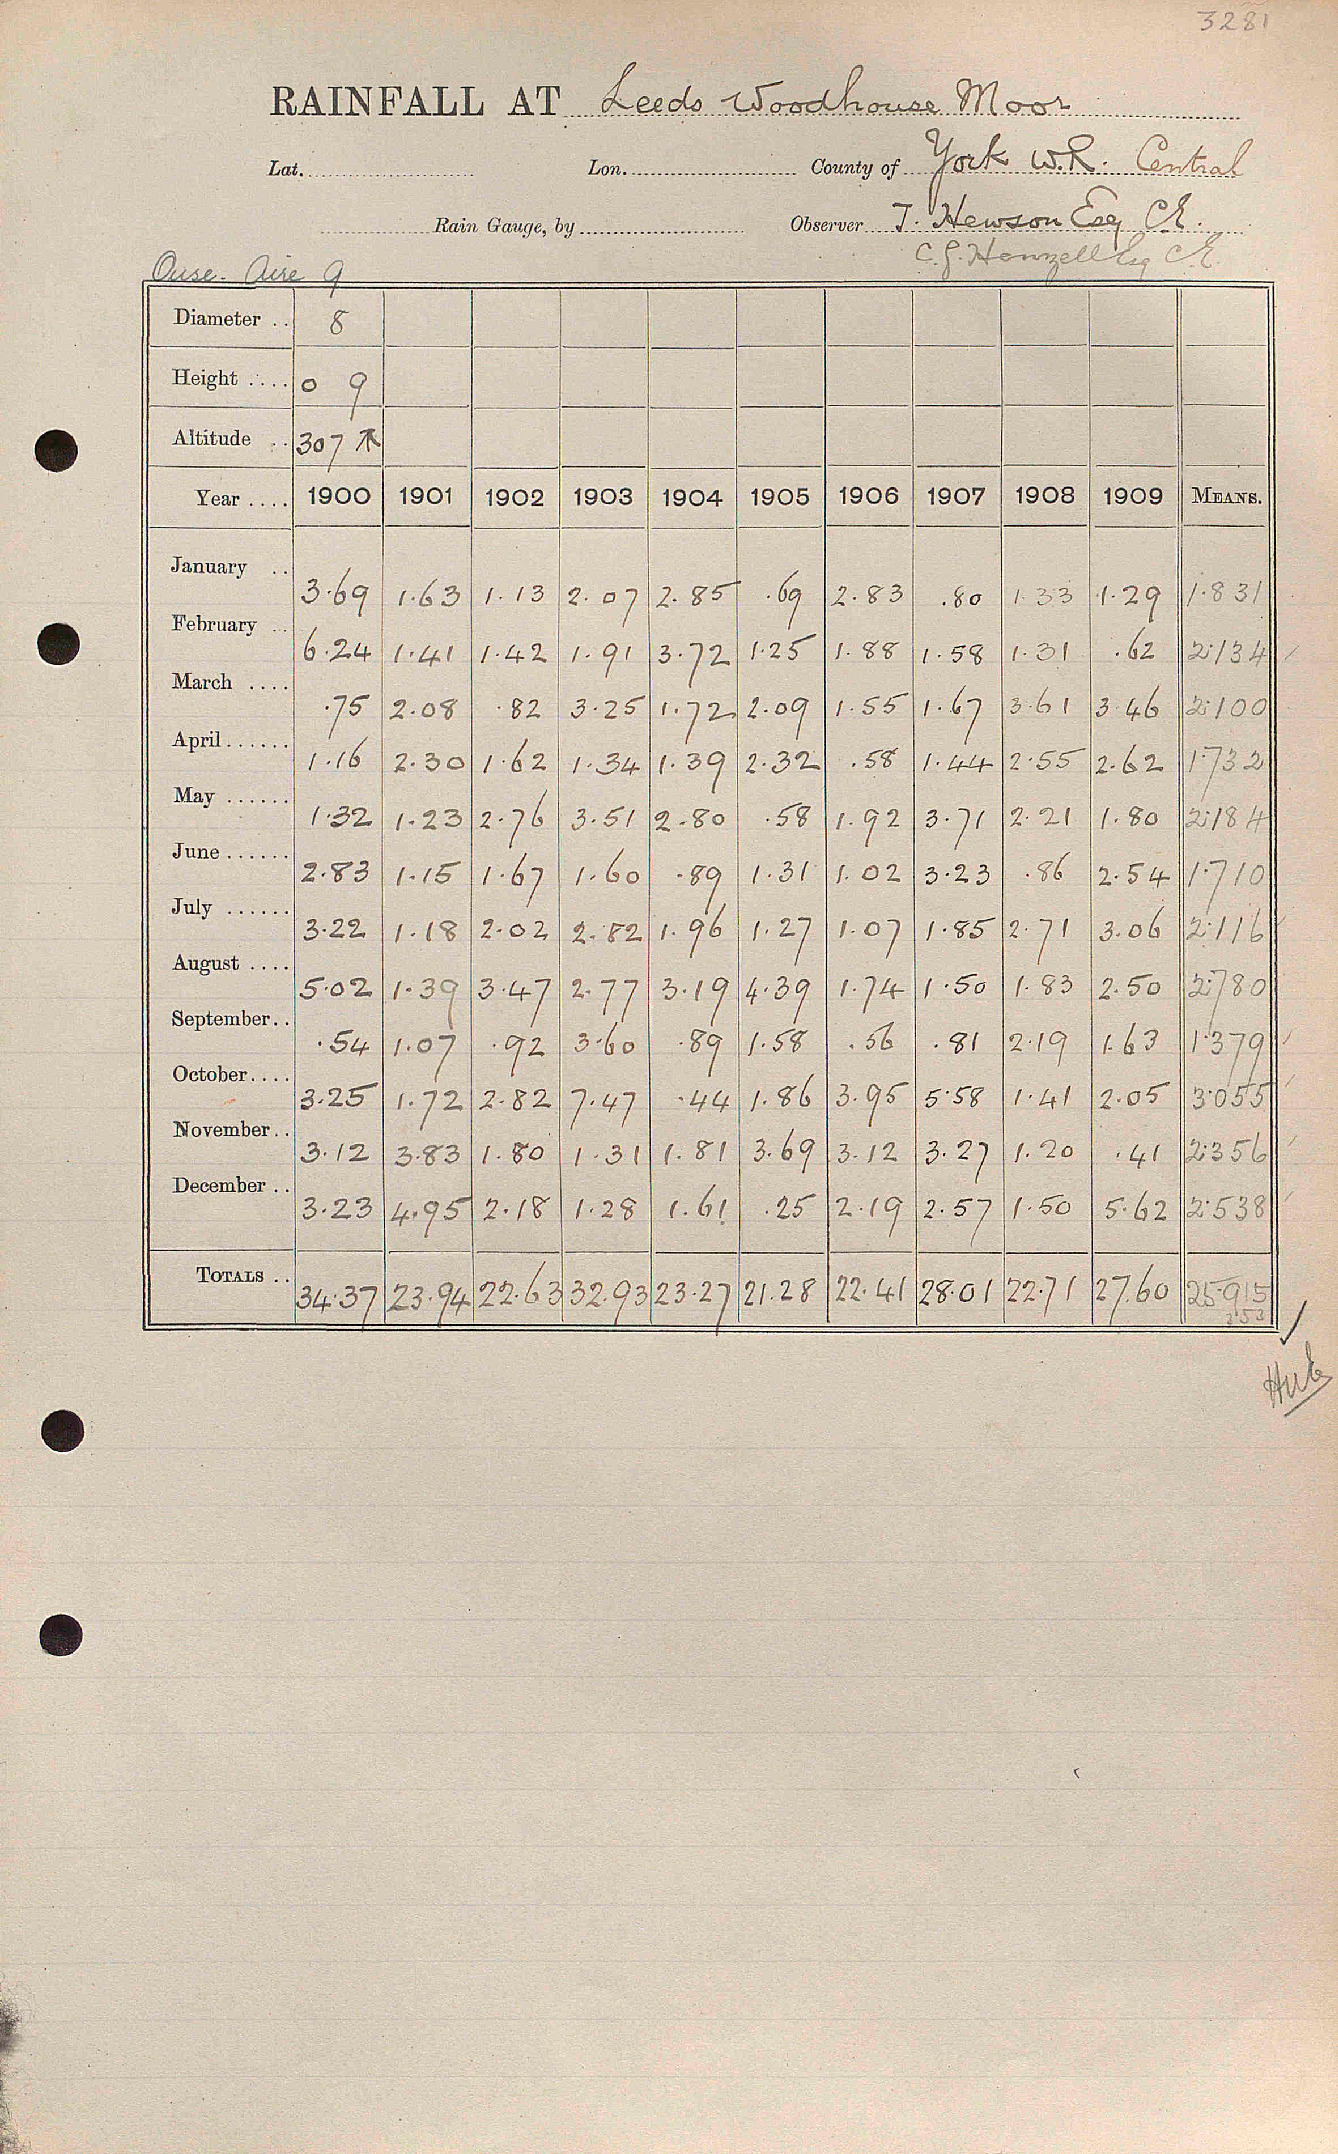 3281
RAINFALL AT Leeds Woodhouse Moor
Lat. Lon. County of York W.R. Central
Rain Gauge, by Observer T. Hewson Esq C.E.
C. G. Henzell Esq C.E.
Ouse. Aire 9
Diameter .. 8
Height .... 0 9
Altitude .. 307
Year .... 1900 1901 1902 1903 1904 1905 1906 1907 1908 1909 MEANS.
January .. 3.69 1.63 1.13 2.07 2.85 .69 2.83 .80 1.33 1.29 1.831
February .. 6.24 1.41 1.42 1.91 3.72 1.25 1.88 1.58 1.31 .62 2.134
March .... .75 2.08 .82 3.25 1.72 2.09 1.55 1.67 3.61 3.46 2.100
April ...... 1.16 2.30 1.62 1.34 1.39 2.32 .58 1.44 2.55 2.62 1.732
May ...... 1.32 1.23 2.76 3.51 2.80 .58 1.92 3.71 2.21 1.80 2.184
June ...... 2.83 1.15 1.67 1.60 .89 1.31 1.02 3.23 .86 2.54 1.710
July ...... 3.22 1.18 2.02 2.82 1.96 1.27 1.07 1.85 2.71 3.06 2.116
August .... 5.02 1.39 3.47 2.77 3.19 4.39 1.74 1.50 1.83 2.50 2.780
September .. .54 1.07 .92 3.60 .89 1.58 .56 .81 2.19 1.63 1.379
October .... 3.25 1.72 2.82 7.47 .44 1.86 3.95 5.58 1.41 2.05 3.055
November .. 3.12 3.83 1.80 1.31 1.81 3.69 3.12 3.27 1.20 .41 2.356
December .. 3.23 4.95 2.18 1.28 1.61 .25 2.19 2.57 1.50 5.62 2.538
TOTALS .. 34.37 23.94 22.63 32.93 23.27 21.28 22.41 28.01 22.71 27.60 25.915